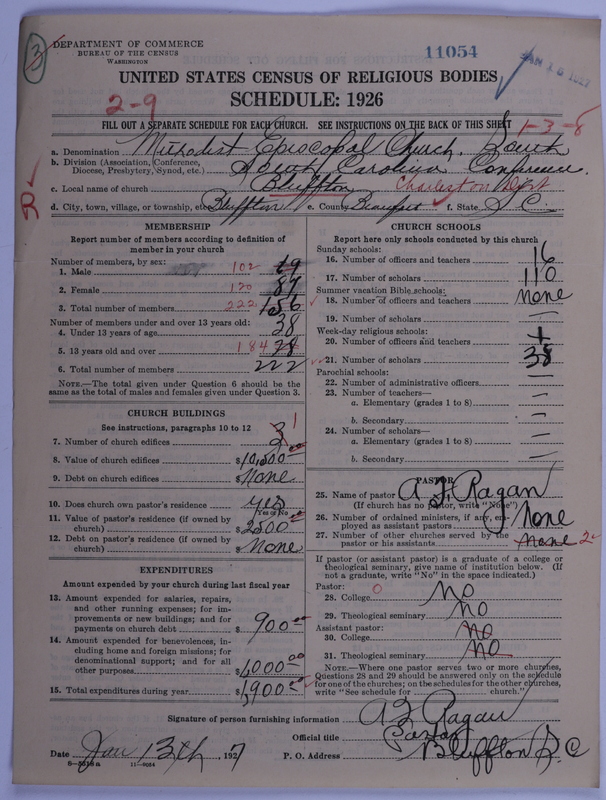 3
DEPARTMENT OF COMMERCE
BUREAU OF THE CENSUS
WASHINGTON
11054
UNITED STATES CENSUS OF RELIGIOUS BODIES
2-9
SCHEDULE: 1926
FILL OUT A SEPARATE SCHEDULE FOR EACH CHURCH. SEE INSTRUCTIONS ON THE BACK OF THIS SHEET
1-3-8
a. Denomination Methodist Episcopal Church, South
b. Division (Association, Conference, Diocese, Presbytery, Synod, etc.) South Carolina Conference.
c. Local name of church Bluffton Charleston Dist
R
d. City, town, village, or township, etc. Bluffton e. County Beaufort f. State S.C.
MEMBERSHIP
Report number of members according to definition of
member in your church
Number of members, by sex:
1. Male 102
2. Female 120 87
3. Total number of members 222 156
Number of members under and over 13 years old:
4. Under 13 years of age 38
5. 13 years old and over 184
6. Total number of members 222
NOTE.—The total given under Question 6 should be
same as the total of males and females given under Question 3.
CHURCH BUILDINGS
See instructions, paragraphs 10 to 12
7. Number of church edifices 3 1
8. Value of church edifices $10,500.00
9. Debt on church edifices $None
10. Does church own pastor's residence yes
Yes or No
11. Value of pastor's residence (if owned by
church) $2500.00
12. Debt on pastor's residence (if owned by
church) $None
EXPENDITURES
Amount expended by your church during last fiscal year
13. Amount expended for salaries, repairs,
and other running expenses; for im-
provements or new buildings; and for
payments on church debt $900.00
14. Amount expended for benevolences, in-
cluding home and foreign missions; for
denominational support; and for all
other purposes $1,000.00
15. Total expenditures during year $1,900.00
CHURCH SCHOOLS
Report here only schools conducted by this church
Sunday schools:
16. Number of officers and teachers 16
17. Number of scholars 110
Summer vacation Bible schools:
18. Number of officers and teachers None
19. Number of scholars —
Week-day religious schools:
20. Number of officers and teachers
21. Number of scholars 38
Parochial schools:
22. Number of administrative officers —
23. Number of teachers—
a. Elementary (grades 1 to 8) —
b. Secondary —
24. Number of scholars—
a. Elementary (grades 1 to 8) —
b. Secondary —
PASTOR
25. Name of pastor A. F. Ragan
(If church has no pastor, write "None")
26. Number of ordained ministers, if any, em-
ployed as assistant pastors None
27. Number of other churches served by the
pastor or his assistants None 2
If pastor (or assistant pastor) is a graduate of a college or
theological seminary, give name of institution below. (If
not a graduate, write "No" in the space indicated.)
Pastor:
28. College 0 No
29. Theological seminary No
Assistant pastor:
30. College No
31. Theological seminary No
NOTE.—Where one pastor serves two or more churches,
Questions 28 and 29 should be answered only on the schedule
for one of the churches; on the schedules for the other churches,
write "See schedule for church."
Signature of person furnishing information A F Ragan
Official title Pastor
Date Jan 13th, 1927 P. O. Address Bluffton S.C
11—9054